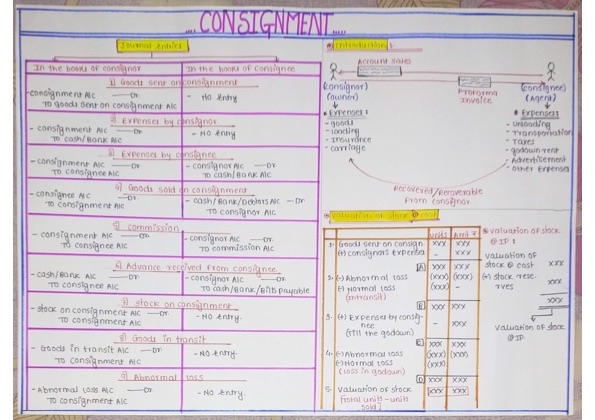 .... CONSIGNMENT ....
Journal Entries
In the books of consignor
In the books of consignee
1) Goods sent on consignment
-consignment A/C —Dr
To goods sent on consignment A/C
- No entry
2) Expenses by consignor
- consignment A/C —Dr
To cash/Bank A/C
- No entry
3) Expenses by consignee
-consignment A/C —Dr
To consignee A/C
- consignor A/C —Dr
To cash/Bank A/C
4) Goods sold on consignment
-consignee A/C —Dr
To consignment A/C
- cash/Bank/Debtors A/C —Dr
To consignor A/C
5) commission
- consignment A/C —Dr
To consignee A/C
-consignor A/C —Dr
To commission A/C
6) Advance received from consignee
-cash/Bank A/C —Dr
To consignee A/C
- consignor A/C —Dr
To cash/Bank/Bills payable
7) stock on consignment
-stock on consignment A/C —Dr
To consignment A/C
- No entry.
8) Goods in transit
- Goods in transit A/C —Dr
To consignment A/C
- No entry.
9) Abnormal Loss
-Abnormal Loss A/C —Dr
To consignment A/C
- No entry.
Introduction :
Account sales
Proforma Invoice
(consignor)
(owner)
(consignee)
(Agent)
Expenses :
- goods
- loading
- Insurance
- carriage
Expenses :
- unloading
- Transportation
- Taxes
- godown rent
- Advertisement
- other Expenses
Recovered/Recoverable
From consignor
Valuation of stock @ cost
Units Amt ₹
1. Goods sent on consign. xxx xxx
(+) consignor's Expenses - xxx
A xxx xxx
2. (-) Abnormal loss (xxx) (xxx)
(-) normal loss (xxx) -
(in transit)
B xxx xxx
3. (+) Expenses by consignee
(till the godown) - xxx
C xxx xxx
4. (-) Abnormal loss (xxx) (xxx)
(-) Normal loss (xxx)
(loss in godown)
D xxx xxx
5. Valuation of stock xxx xxx
[total units - units
sold]
valuation of stock
@ IP :
valuation of
stock @ cost xxx
(+) stock rese-
rves xxx
xxx
valuation of stock
@ IP.